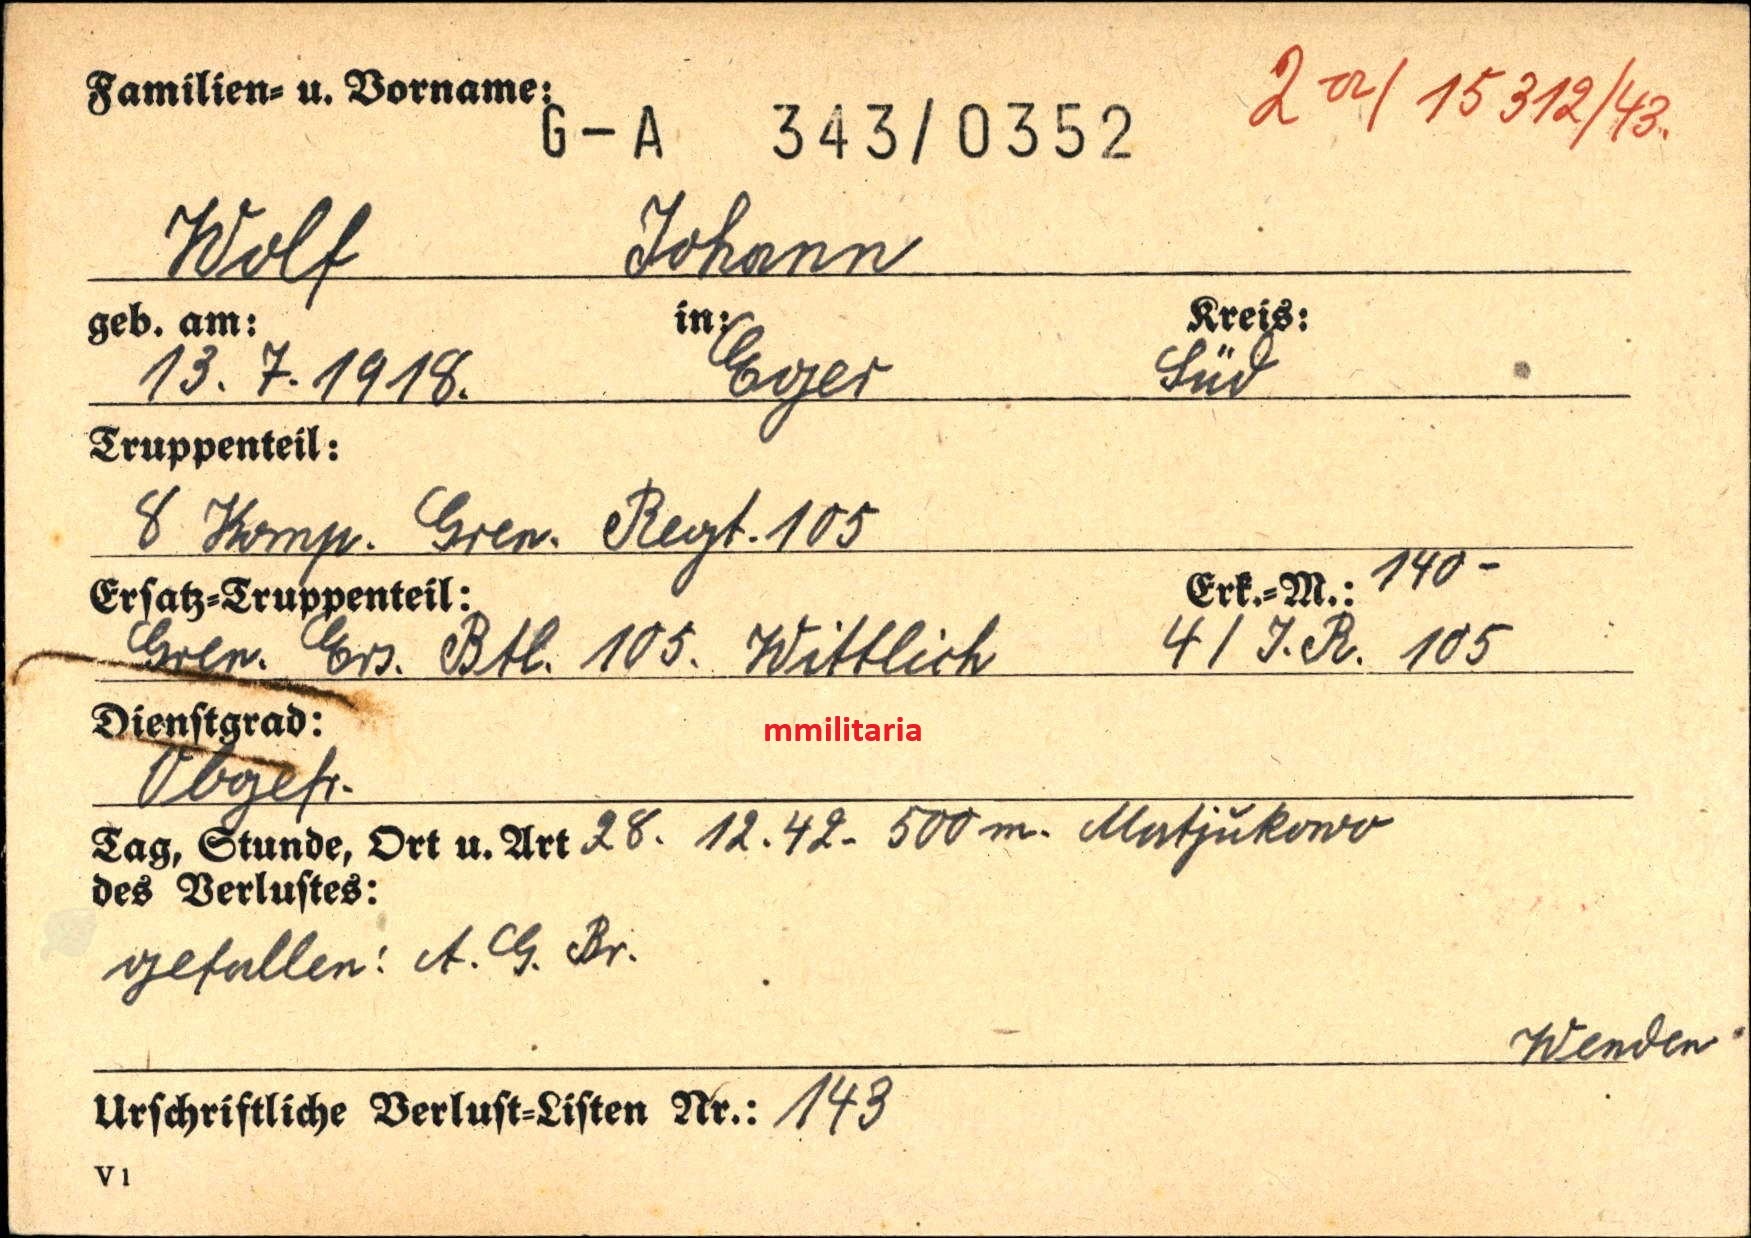 Familien- u. Vorname:
G-A 343/0352
2 a/ 15312/43.
Wolf Johann
geb. am: in: Kreis:
13. 7. 1918. Eger Süd
Truppenteil:
8 Komp. Gren. Regt. 105
Ersatz-Truppenteil: Erk.-M.: 140-
Gren. Ers. Btl. 105. Wittlich 4/ J.R. 105
Dienstgrad:
mmilitaria
Obgefr.
Tag, Stunde, Ort u. Art 28. 12. 42. 500 m. Matjukowo
des Verlustes:
gefallen: A. G. Br.
Wenden
Urschriftliche Verlust-Listen Nr.: 143
V 1